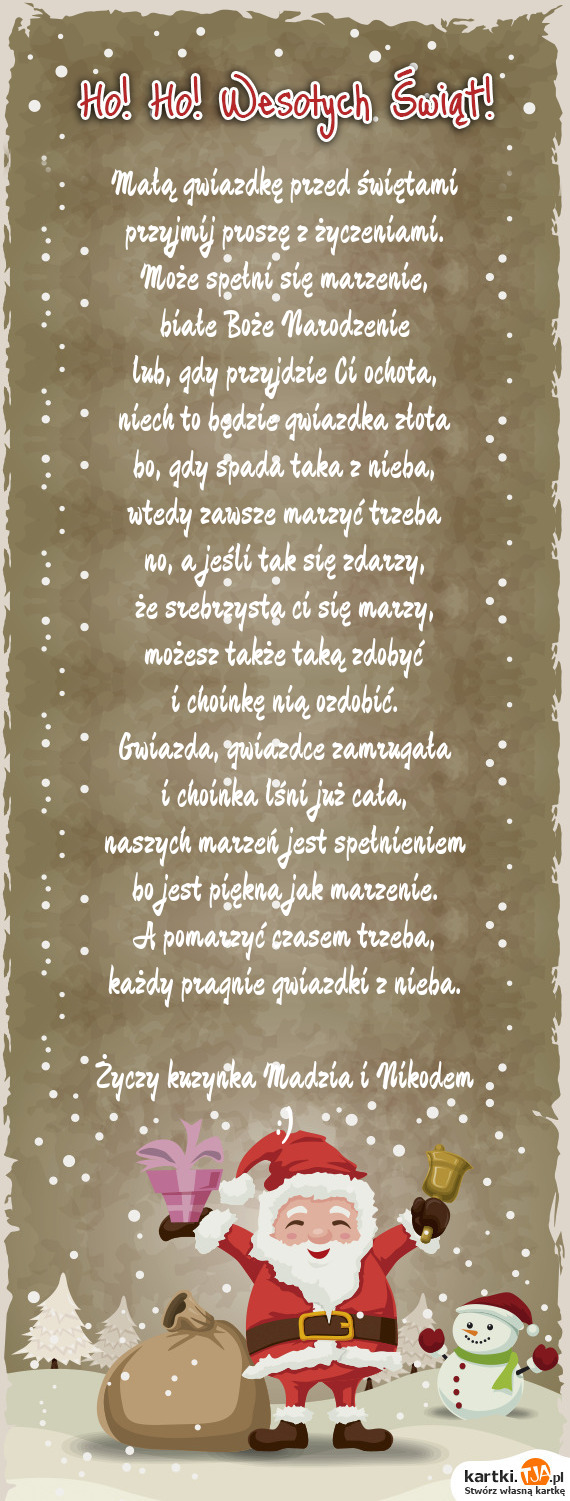 Ho! Ho! Wesołych Świąt!
Małą gwiazdkę przed świętami
przyjmij proszę z życzeniami.
Może spełni się marzenie,
białe Boże Narodzenie
lub, gdy przyjdzie Ci ochota,
niech to będzie gwiazdka złota
bo, gdy spada taka z nieba,
wtedy zawsze marzyć trzeba
no, a jeśli tak się zdarzy,
że srebrzysta ci się marzy,
możesz także taką zdobyć
i choinkę nią ozdobić.
Gwiazda, gwiazdce zamrugała
i choinka lśni już cała,
naszych marzeń jest spełnieniem
bo jest piękna jak marzenie.
A pomarzyć czasem trzeba,
każdy pragnie gwiazdki z nieba.
Życzy kuzynka Madzia i Nikodem
:)
kartki.TJA.pl
Stwórz własną kartkę